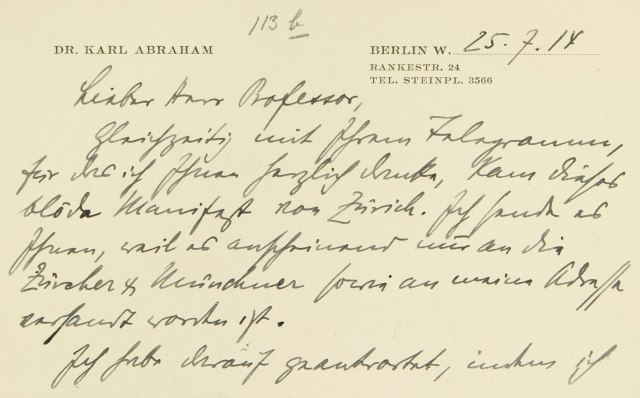 113 b
DR. KARL ABRAHAM
BERLIN W. 25.7.14
RANKESTR. 24
TEL. STEINPL. 3566
Lieber Herr Professor,
Gleichzeitig mit Ihrem Telegramm,
für das ich Ihnen herzlich danke, kam dieses
blöde Manifest von Zürich. Ich sende es
Ihnen, weil es anscheinend nur an die
Zürcher & Münchner sowie an meine Adresse
versandt worden ist.
Ich habe darauf geantwortet, indem ich